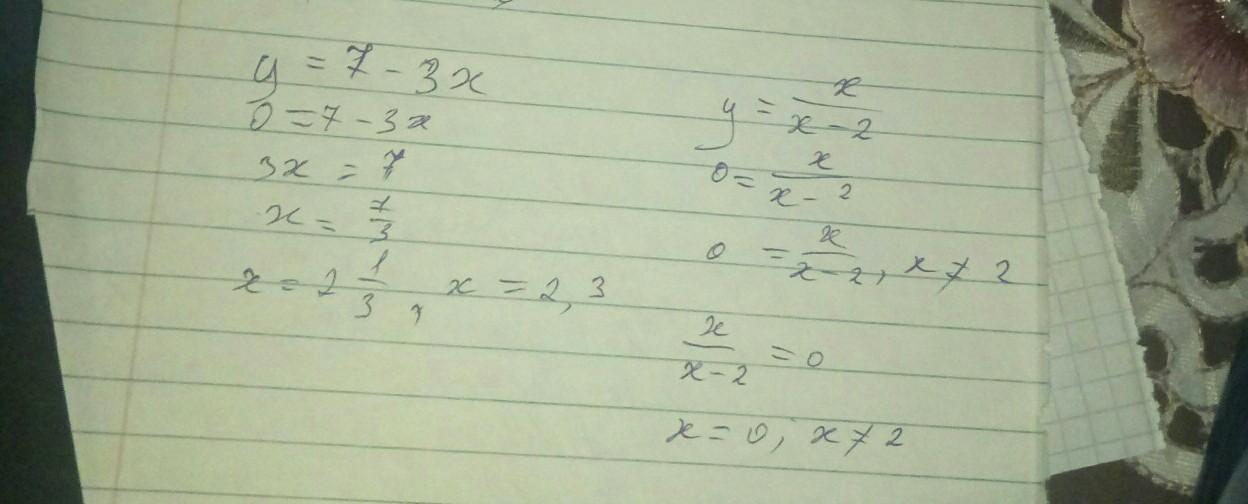 y = 7 - 3x
0 = 7 - 3x
3x = 7
x = 7/3
x = 2 1/3, x = 2,3
y = x/(x-2)
0 = x/(x-2)
0 = x/(x-2), x ≠ 2
x/(x-2) = 0
x = 0; x ≠ 2